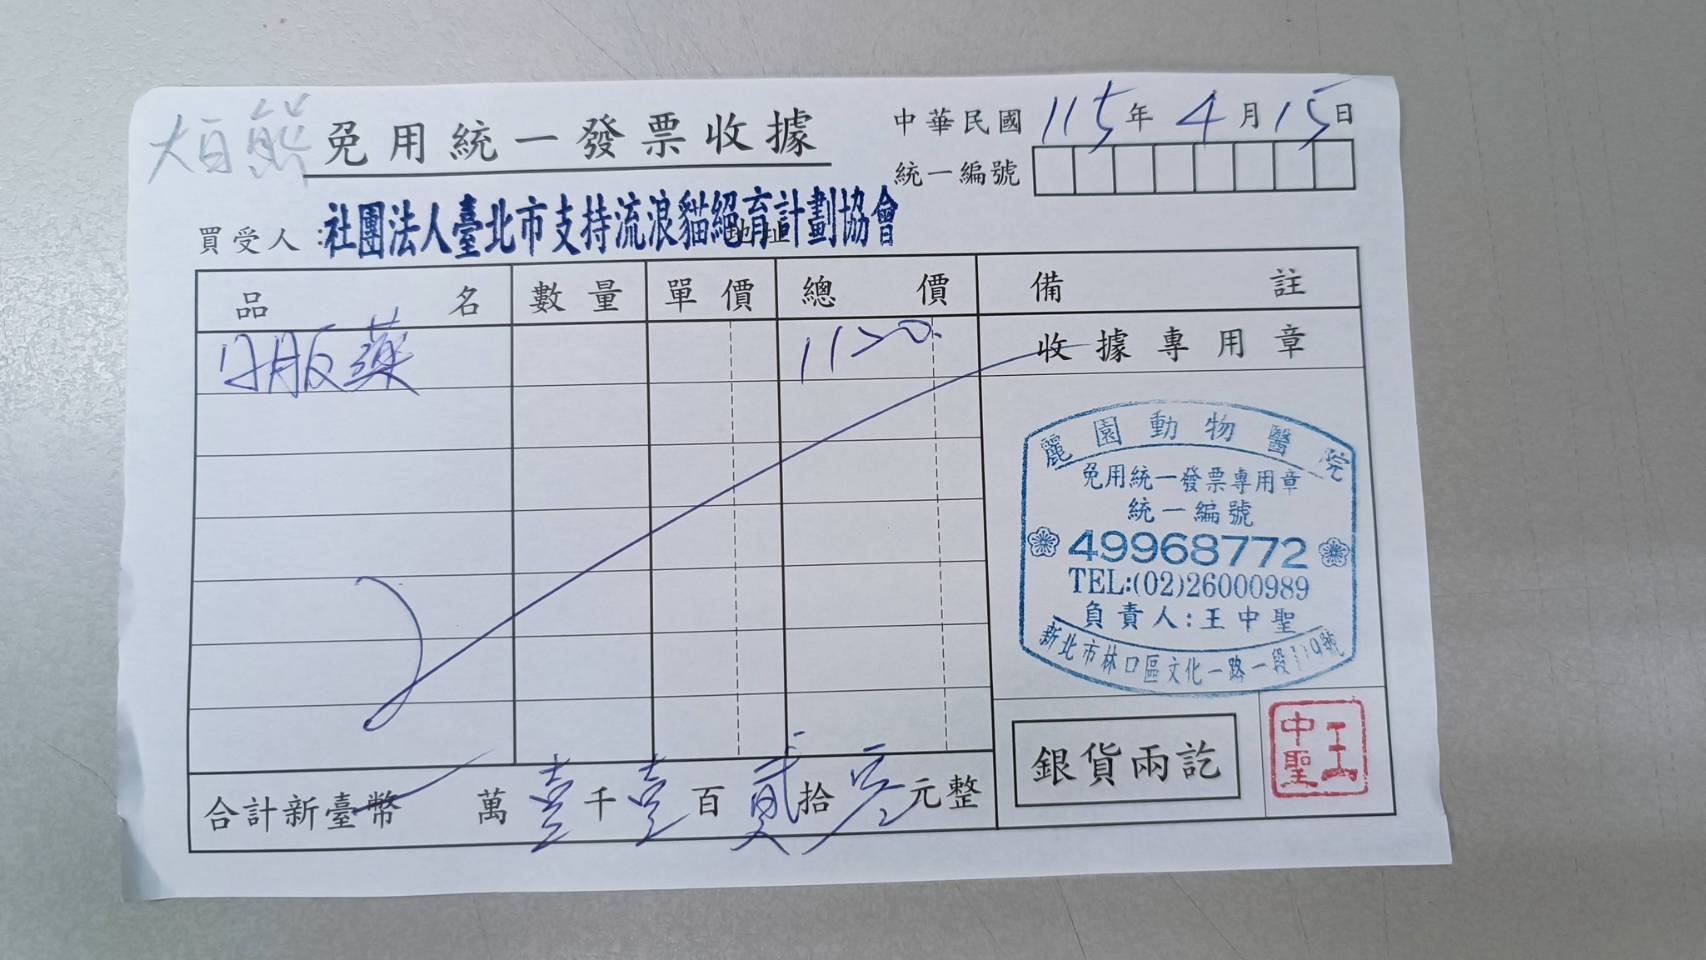 大白熊
免用統一發票收據
中華民國115年4月15日
統一編號
買受人：社團法人臺北市支持流浪貓絕育計劃協會
地址
品名 數量 單價 總價 備註
口服藥 1120.
收據專用章
麗園動物醫院
免用統一發票專用章
統一編號
49968772
TEL:(02)26000989
負責人:王中聖
新北市林口區文化一路一段119號
合計新臺幣 萬壹千壹百貳拾零元整
銀貨兩訖
王中聖